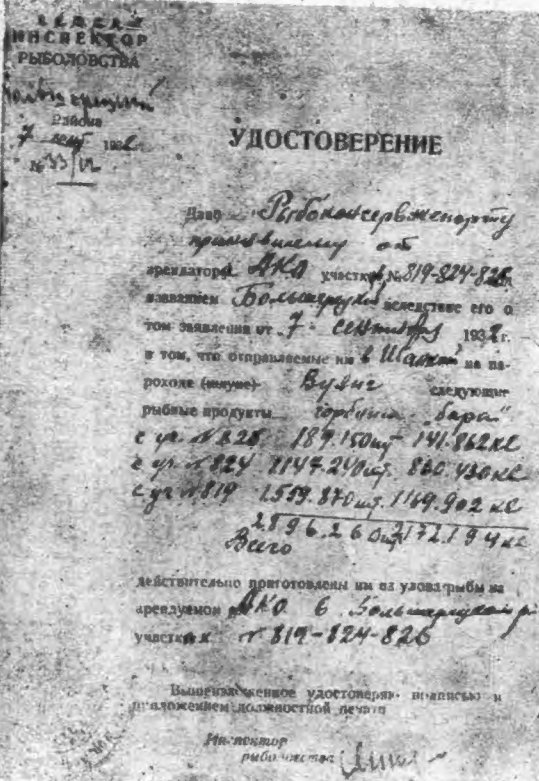 ИНСПЕКТОР
РЫБОЛОВСТВА
Района
7 сент 1932
№ 33/12
УДОСТОВЕРЕНИЕ
Дано Рыбоконсервэкспорту
принявшему от
арендатора АКО участков № 819-824-826
названием Большерецкий вследствие его о
том заявления от 7 сентября 1932 г.
в том, что отправляемые им в на па-
роходе (шхуне) следующие
рыбные продукты горбуша
с уч. № 826 189.150 шт 141.862 кг
с уч. № 824 1147.240 шт. 860.430 кг
с уч. № 819 1.559.870 шт. 1169.902 кг
2.896.260 шт 2172.194 кг
Всего
действительно приготовлены им из улова рыбы на
арендуемом АКО в Большерецком р.
участках № 819-824-826
Вышеизложенное удостоверяю подписью и
приложением должностной печати
Инспектор
рыболовства